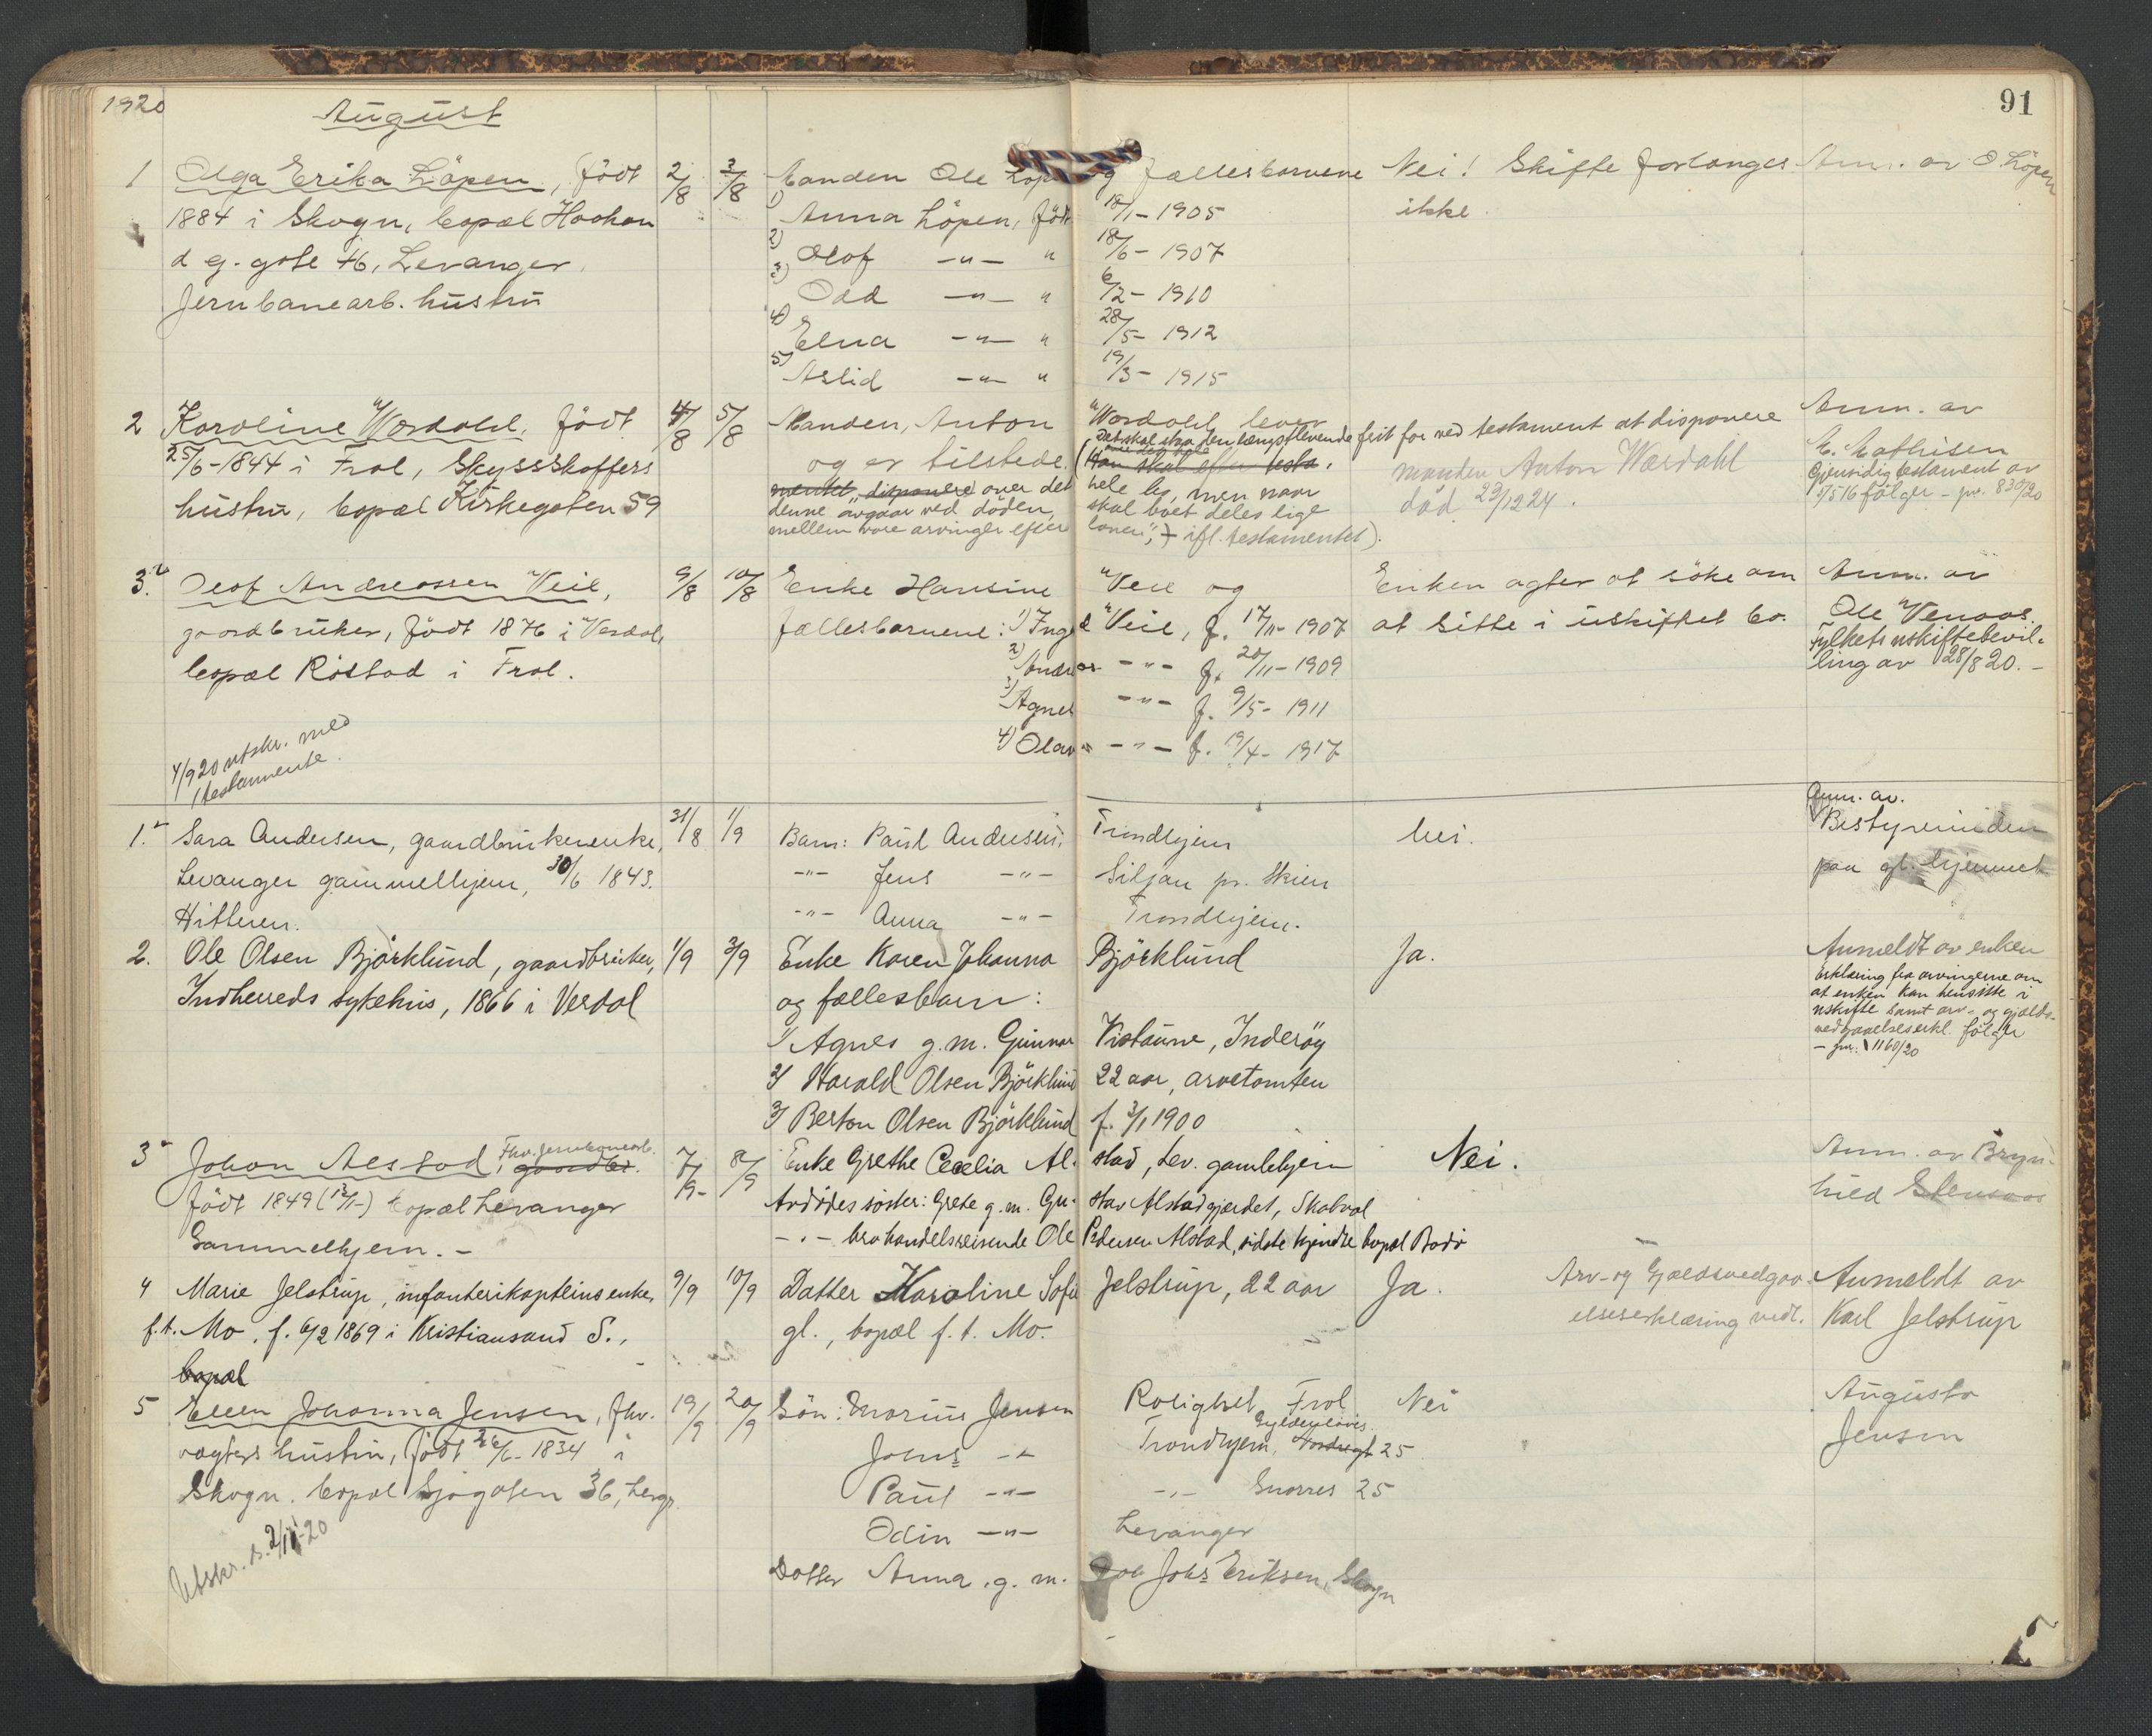 1920
August
91
1 Olga Erika Löpen, født 2/8 3/8 Manden Ole Löpen og fællesbarnene Nei! Skifte forlanges Anm. av O. Löpen
1884 i Skogn, bopæl Haakon 1) Anna Löpen, født 18/1 - 1905 ikke
d g. gate 46, Levanger. 2) Olof -"- " 18/6 - 1907
Jernbanearb. hustru 3) Odd -"- " 6/2 - 1910
4) Elna -"- " 28/5 - 1912
5) Aslid -"- " 19/3 - 1915
2 Karoline Wærdahl, født 4/8 5/8 Manden, Anton Wærdahl, lever Anm. av
25/6 - 1844 i Frol, Skydsskaffers og er tilstede. (Det skal staa den længstlevende frit for ved testament at disponere M. Mathisen
hustru, bopæl Kirkegaten 59 Han skal efter testa- manden Anton Wærdahl Gjensidig testament av
mentet "disponere over det hele bo, men naar død 23/12 24. 1/5 16 følger - jnr. 830/20
denne avgaar ved döden, skal boet deles lige
mellem vore arvinger efter loven", - ifl. testamentet).
3. Olof Andreassen Veie, 9/8 10/8 Enke Hansine Veie og Enken agter at söke om Anm. av
gaardbruker, födt 1876 i Verdal, fællesbarnene: 1) Inga Veie, f. 17/11 - 1907 at sitte i uskiftet bo. Ole Venaas.
bopæl Röstad i Frol. 2) Andreas -"- f. 20/11 - 1909 Fylkets uskiftebevil-
3) Agnes -"- f. 9/5 - 1911 ling av 28/8 20. -
4) Olav -"- f. 19/4 - 1917
4/9 20 utskr. med
1 testamente.
1. Sara Andersen, gaardbrukerenke, 31/8 1/9 Barn: Paul Andersen, Trondhjem nei. Anm. av.
Levanger gammelhjem, 30/6 1843. -"- Jens -"- Siljan pr. Skien Bestyrerinden
Hitteren. -"- Anna -"- Trondhjem. paa gl. hjemmet
2. Ole Olsen Björklund, gaardbruker, 1/9 3/9 Enke Karen Johanna Björklund Ja. Anmeldt av enken
Indherreds sykehus, 1866 i Verdal og fællesbarn: Erklæring fra arvingerne om
1/ Agnes g.m. Gunnar Vistaune, Inderöy at enken kan hensitte i
2/ Harald Olsen Björklund 22 aar, arvetomten uskifte samt arv- og gjælds-
3/ Berton Olsen Björklund f. 3/1 1900 vedgaaelseserkl. følger
- jnr. 1160/20
3 Johan Alstad, Fhv. jernbanearb. gaardbr. 7/9 - 8/9 Enke Grethe Cecelia Alstad, Lev. gamlehjem Nei. Anm. av Bryn-
født 1849 (12/11-) bopæl Levanger Avdødes søster: Grete g.m. Gustav Alstadgjærdet, Skatval hild Stenaas
Gammelhjem. - -"- bro handelsreisende Ole Pedersen Alstad, sidste kjendte bopæl Bodö
4 Marie Jelstrup, infanterikapteins enke, 9/9 10/9 Datter Karoline Sofie Jelstrup, 22 aar Ja. Arv- og Gjældsvedgaa- Anmeldt av
f.t. Mo, f. 6/2 1869 i Kristiansand S., gl., bopæl f.t. Mo. elseserklæring vedl. Karl Jelstrup
bopæl
5 Ellen Johanna Jensen, fhv. 19/9 20/9 Sön: Marius Jensen Rolighet, Frol Nei Augusta
vagters hustru, født 26/6 - 1834 i Johs -"- Trondhjem, Gyldenlöves Nordregt 25 Jensen
Skogn. bopæl Sjögaten 36, Levgr. Paul -"- -"- Snorres 25
Odin -"- Levanger
Utskr. s. 2/11-20
Datter Anna g.m. Johs Eriksen, Skogn